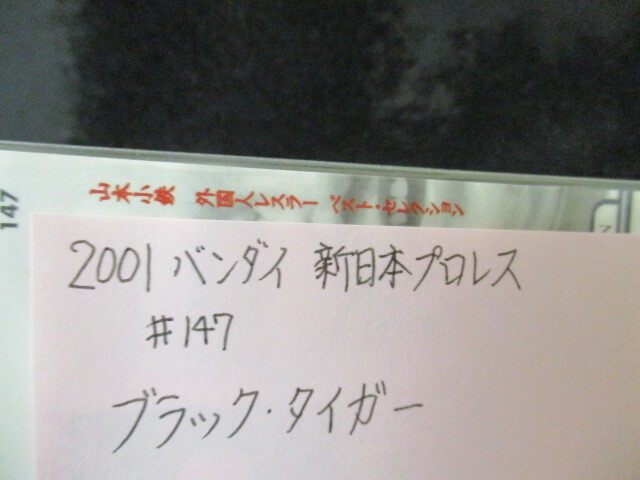 147
山本小鉄 外国人レスラー ベスト・セレクション
2001 バンダイ 新日本プロレス
#147
ブラック・タイガー